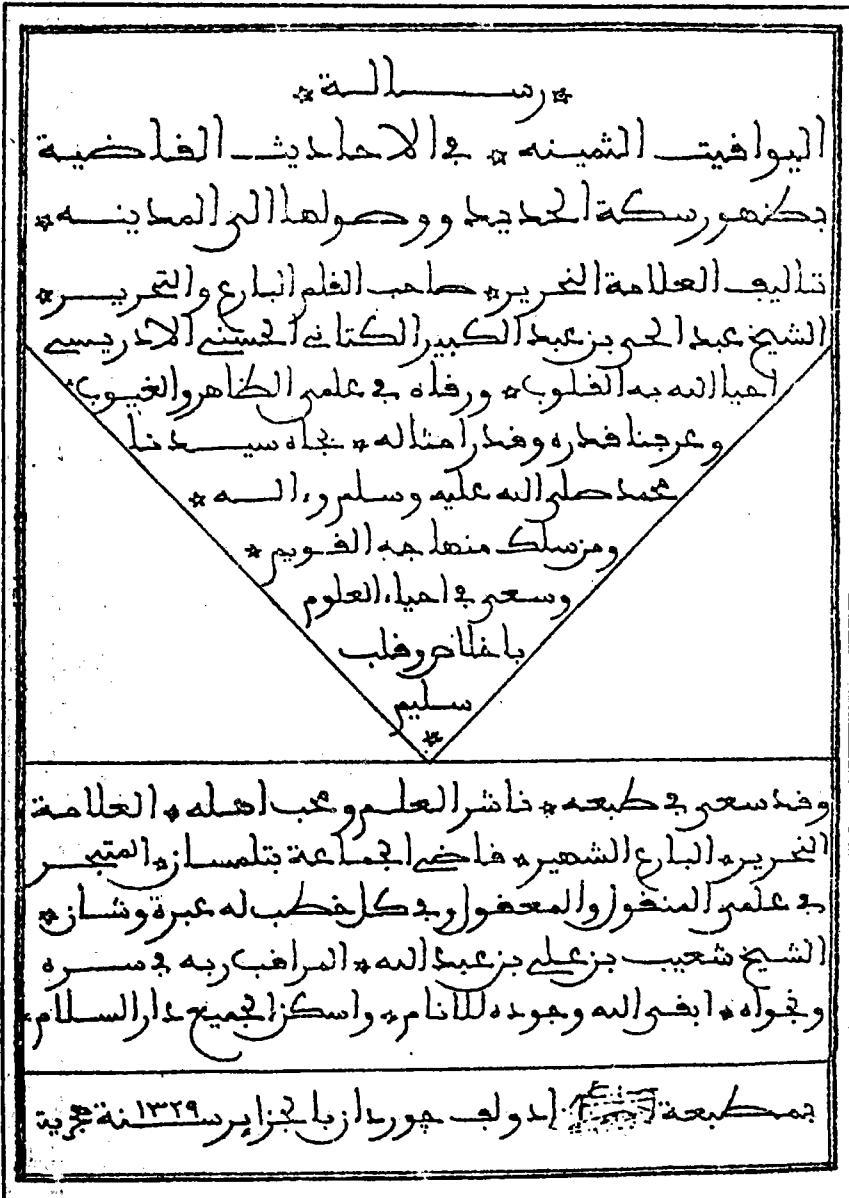 * رســـــالـــة *
اليواقيت الثمينه * في الاحاديث القاضية
بظهور سكة الحديد ووصولها الى المدينــه *
تاليف العلامة النحرير * صاحب القلم البارع والتحريـــر *
الشيخ عبد الحي بن عبد الكبير الكتاني الحسني الادريسي
احيا الله به القلوب * ورقاه في علمي الظاهر والغيوب *
وعرفنا قدره وقدر امثاله * بجاه سيـــدنا
محمد صلى الله عليه وسلم وءالـــه *
ومن سلك منهاجه القـويم *
وسعى في احياء العلوم
باخلاص وقلب
سليم
*
وقد سعى في طبعه * ناشر العلــم ومحب اهلـه * العلامــة
النحرير * البارع الشهير * قاضي الجماعة بتلمسان * المتبحر
في علمي المنقول والمعقول وفي كل خطب له عبرة وشان *
الشيخ شعيب بن علي بن عبد الله * المراقب ربه في ســـره
ونجواه * ابقى الله وجوده للانام * واسكن الجميع دار الســلام *
بمـطبعة ادولف جوردان بالجزاير ســـنة ١٣٢٩ هجرية